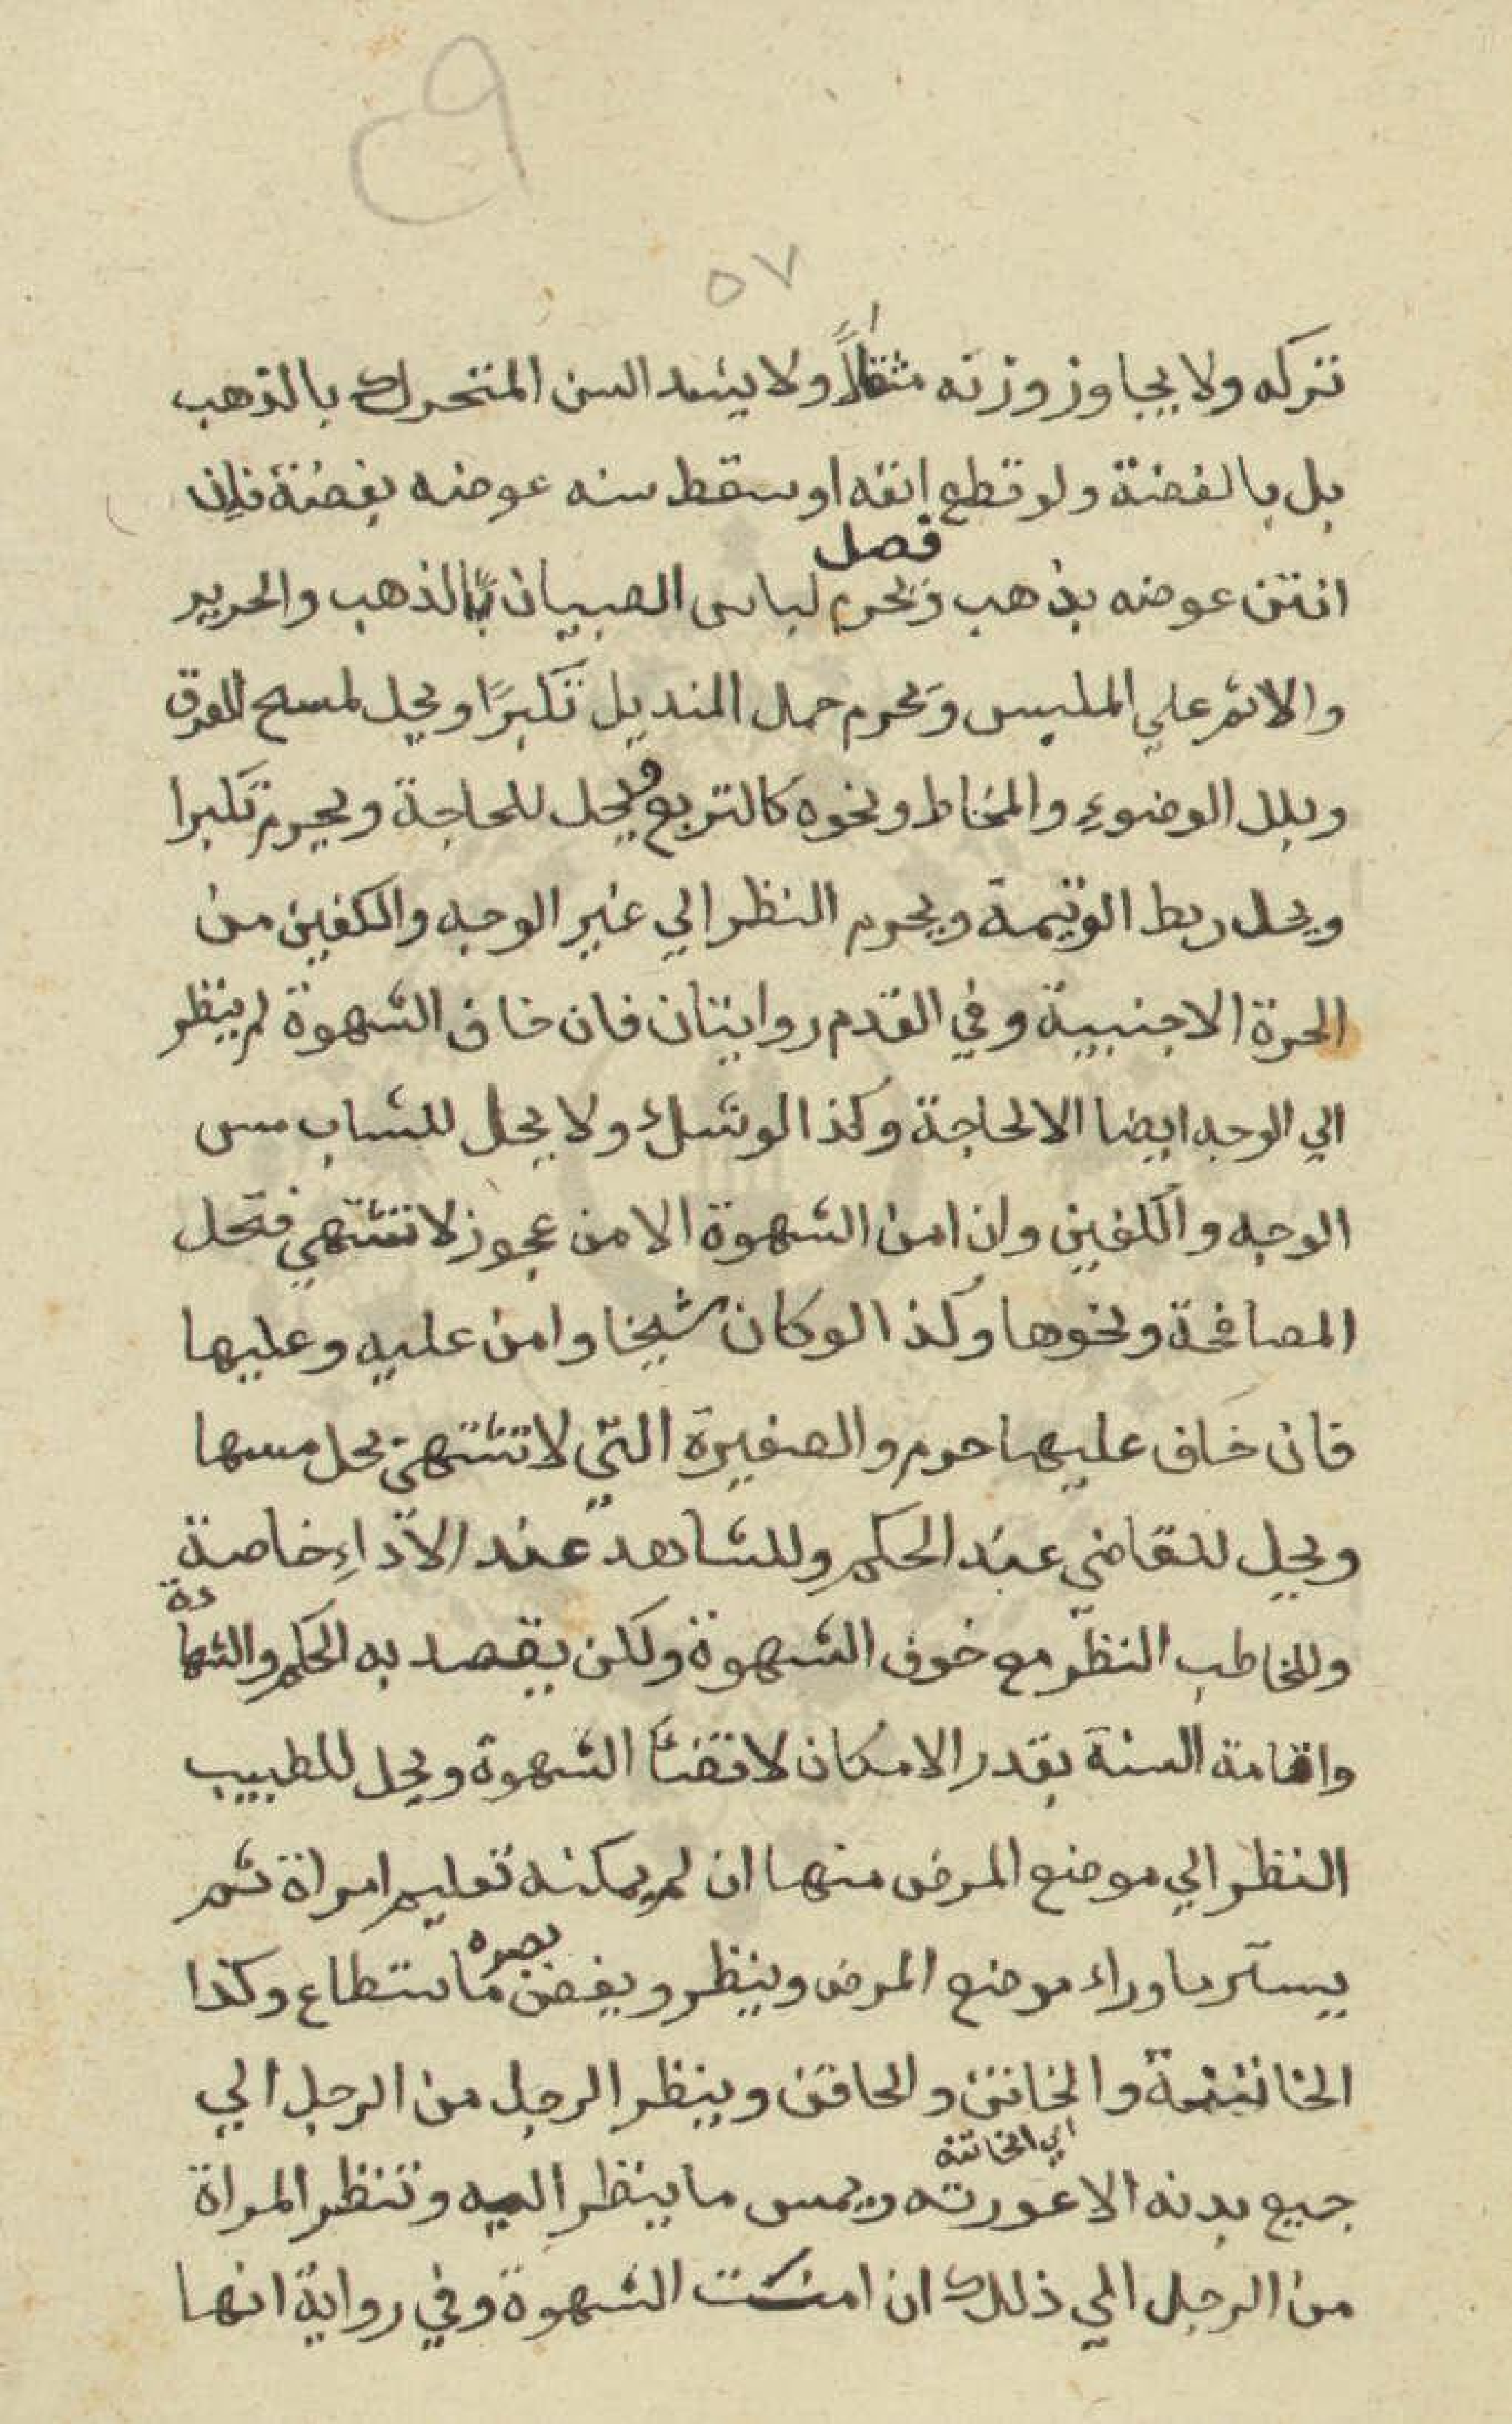 ٥٧
تركه ولا يجاوز وزنه مثقالاً ولا يشد السن المتحرك بالذهب
بل بالفضة ولو قطع انفه او سقط سنه عوضه بفضة فان
فصل
انتن عوضه بذهب ويحرم لباس الصبيان بالذهب والحرير
والاثم علي الملبس ويحرم حمل المنديل تكبرًا ويحل لمسح العرق
وبلل الوضوء والمخاط ونحوه كالتربع ويحل للحاجة ويحرم تكبرا
ويحل ربط الرتيمة ويحرم النظر الي غير الوجه والكفين من
الحرة الاجنبية وفي القدم روايتان فان خاف الشهوة لم ينظر
الي الوجه ايضا الا لحاجة وكذا لو شك ولا يحل للشاب مس
الوجه والكفين وان امن الشهوة الا من عجوز لا تشتهي فتحل
المصافحة ونحوها وكذا لو كان شيخا وامن عليه وعليها
فان خاف عليها حرم والصغيرة التي لا تشتهي يحل مسها
ويحل للقاضي عند الحكم وللشاهد عند الاداءِ خاصة
وللخاطب النظر مع خوف الشهوة ولكن يقصد به الحكم والشهادة
واقامة السنة بقدر الامكان لا قضأ الشهوة ويحل للطبيب
النظر الي موضع المرض منها ان لم يمكنه تعليم امراة ثم
يستر ما وراء موضع المرض وينظر ويغض بصره ما استطاع وكذا
الخاتنة والخاتن والحاقن وينظر الرجل من الرجل الي
اي الخاتنة
جميع بدنه الا عورته ويمس ما ينظر اليه وتنظر المراة
من الرجل الي ذلك ان امنت الشهوة وفي رواية انها